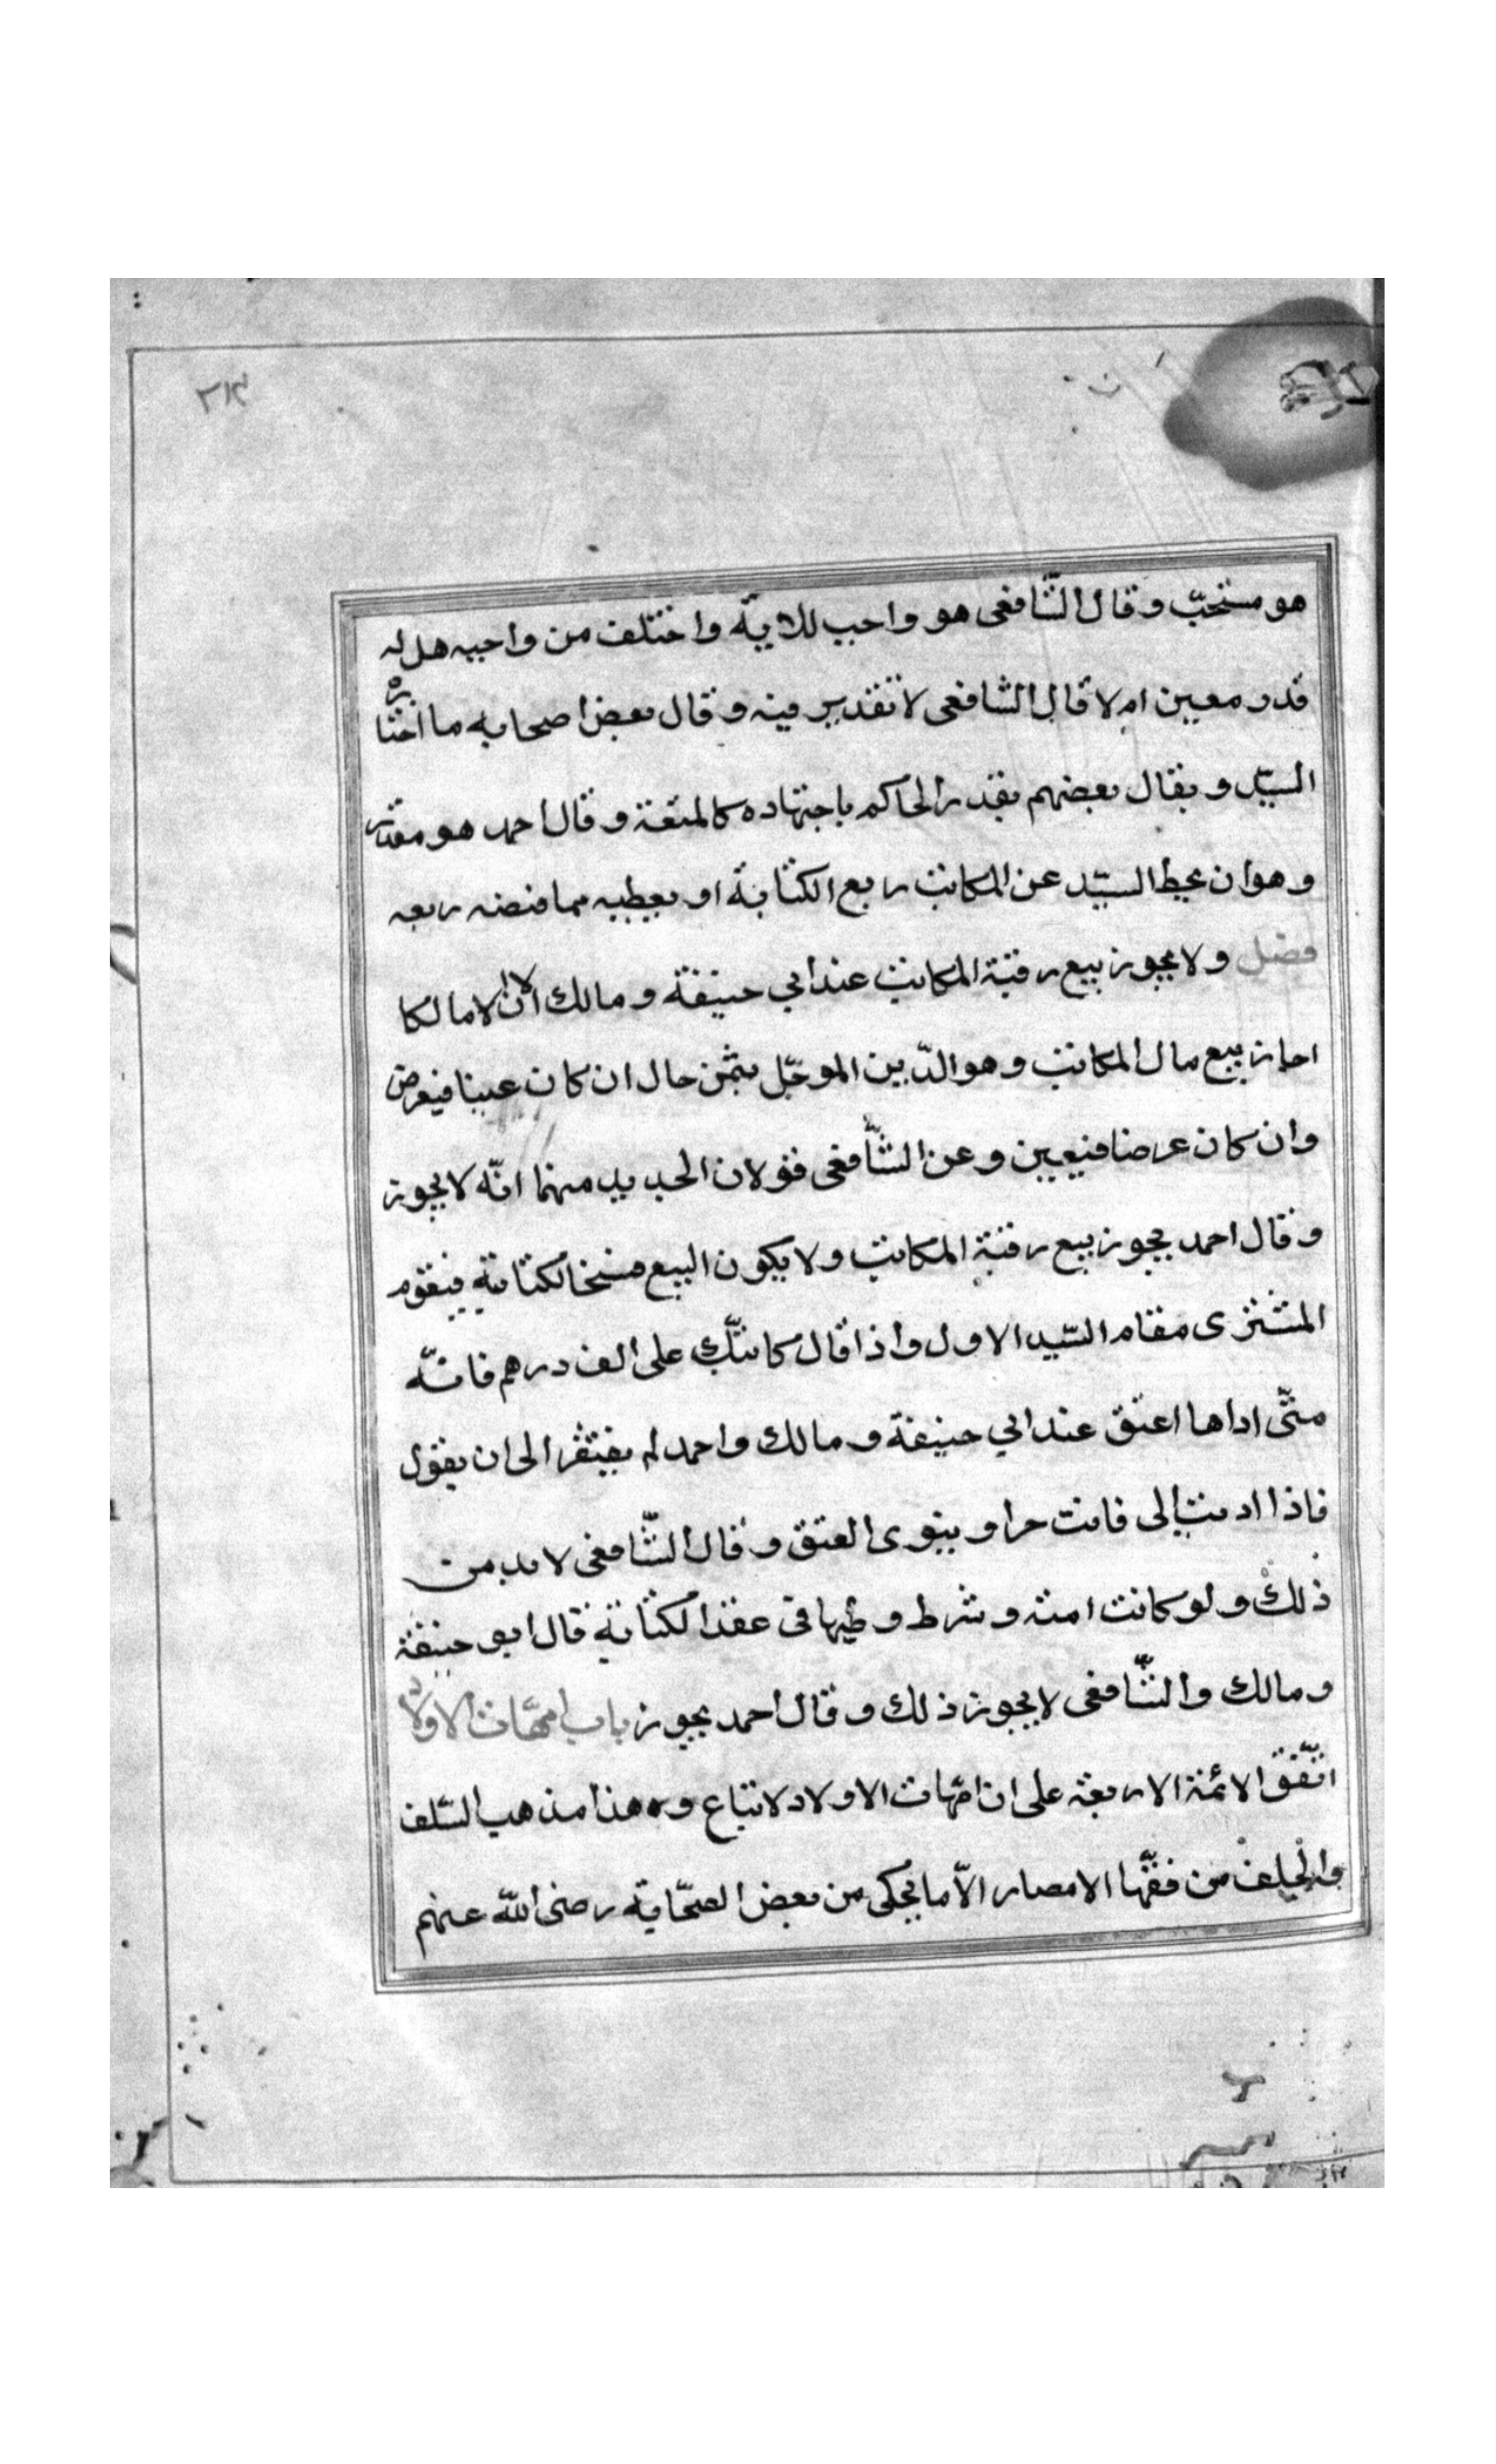 ٣١٣
هو مستحبّ وقال الشّافعى هو واجب للاية واختلف من واجبه هل له
قدر معين ام لا قال الشافعى لا تقدير فيه وقال بعض اصحابه ما اختاره
السيّد وبقال بعضهم يقدر الحاكم باجتهاده كالمتعة وقال احمد هو مقدّر
وهو ان يحط السيّد عن المكاتب ربع الكتابة او يعطيه مما قبضه ربعه
فصل ولا يجوز بيع رقبة المكاتب عند ابي حنيفة ومالك الا ان مالكا
اجاز بيع مال المكاتب وهو الدّين الموجّل بثمن حال ان كان عينا فيعرض
وان كان عرضا فيعين وعن الشّافعى قولان الجديد منهما انّه لا يجوز
وقال احمد يجوز بيع رقبة المكاتب ولا يكون البيع فسخا لكتابته فيقوم
المشترى مقام السّيد الاول واذا قال كاتبتك على الف درهم فانّه
متّى اداها اعتق عند ابي حنيفة ومالك واحمد لم يفتقر الى ان يقول
فاذا اديت الى فانت حر او ينوى العتق وقال الشّافعى لا بد من
ذلك ولو كانت امته وشرط وطيها فى عقد الكتابة قال ابو حنيفة
ومالك والشّافعى لا يجوز ذلك وقال احمد يجوز باب امّهات الاولاد
اتّفق الائمة الاربعة على ان امّهات الاولاد لا تباع وهذا مذهب السّلف
والخلف من فقّها الامصار الاّ ما يحكى من بعض الصّحابة رضى اللّه عنهم